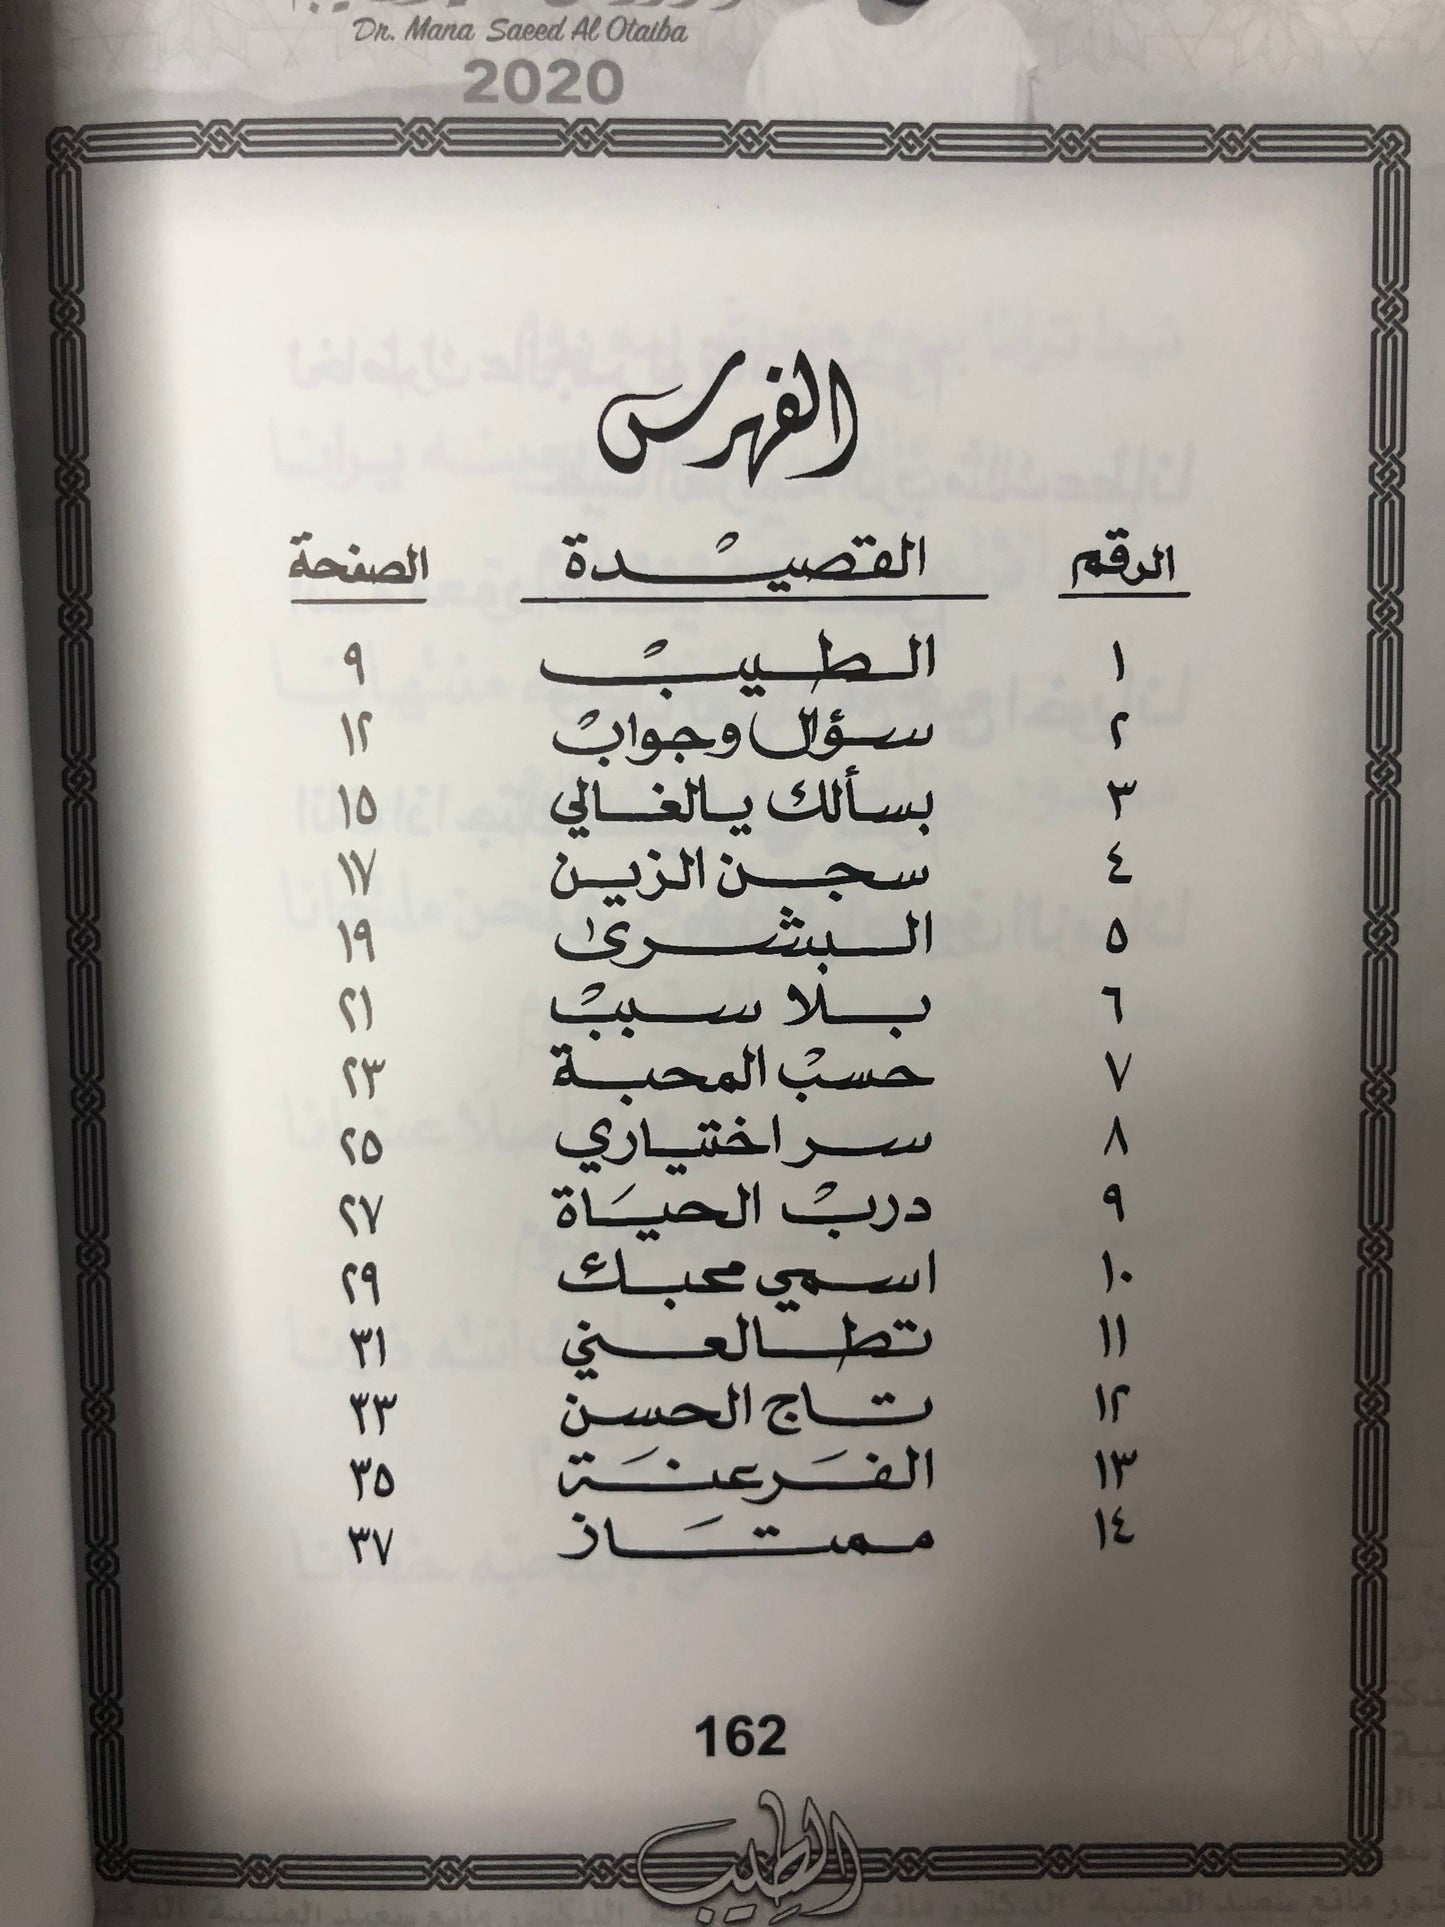 Dr. Mana Saeed Al Otaiba
2020
الفهرس
الرقم القصيدة الصفحة
١ الطيب ٩
٢ سؤال وجواب ١٢
٣ بسألك يالغالي ١٥
٤ سجن الزين ١٧
٥ البشرى ١٩
٦ بلا سبب ٢١
٧ حسب المحبة ٢٣
٨ سر اختياري ٢٥
٩ درب الحياة ٢٧
١٠ اسمي محبك ٢٩
١١ تطالعني ٣١
١٢ تاج الحسن ٣٣
١٣ الفَرعنَة ٣٥
١٤ ممتَاز ٣٧
162
الطيب